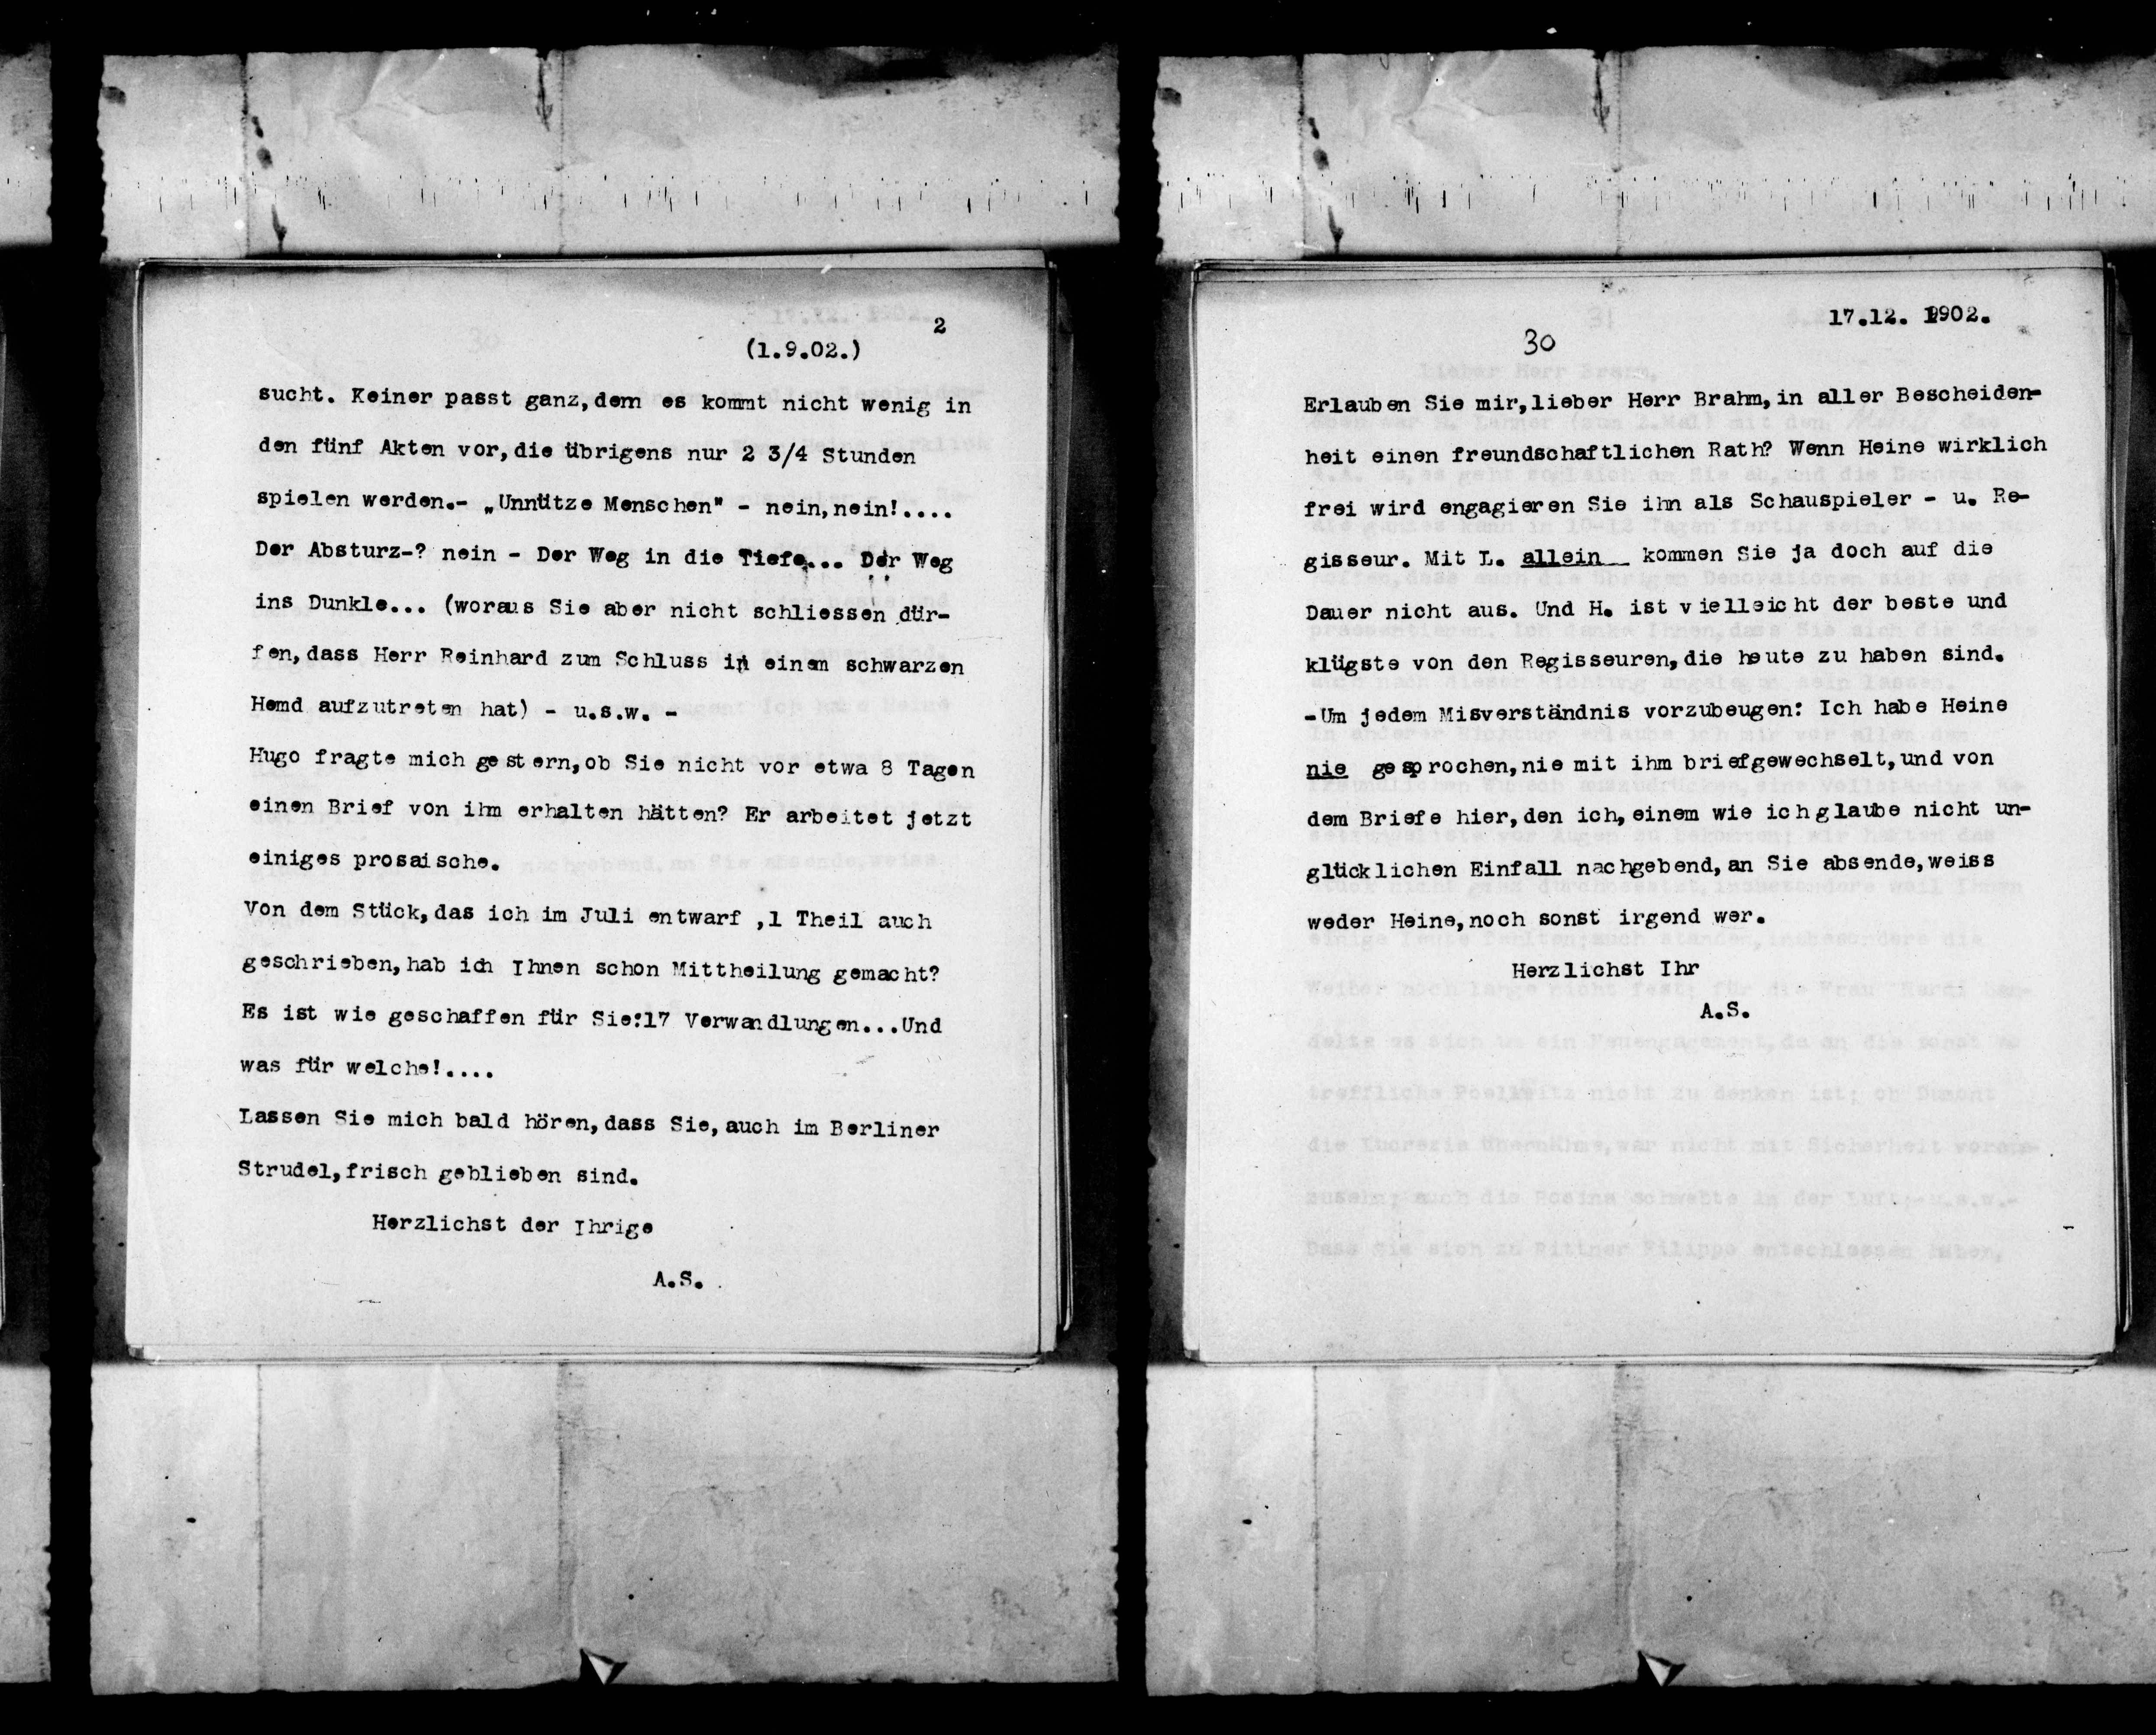 2
(1.9.02.)
sucht. Keiner passt ganz,dem es kommt nicht wenig in
den fünf Akten vor,die übrigens nur 2 3/4 Stunden
spielen werden.- „Unnütze Menschen" - nein,nein!....
Der Absturz-? nein - Der Weg in die Tiefe... Der Weg
ins Dunkle... (woraus Sie aber nicht schliessen dür-
fen,dass Herr Reinhard zum Schluss in einem schwarzen
Hemd aufzutreten hat) - u.s.w. -
Hugo fragte mich gestern,ob Sie nicht vor etwa 8 Tagen
einen Brief von ihm erhalten hätten? Er arbeitet jetzt
einiges prosaische.
Von dem Stück,das ich im Juli entwarf ,1 Theil auch
geschrieben,hab ich Ihnen schon Mittheilung gemacht?
Es ist wie geschaffen für Sie:17 Verwandlungen...Und
was für welche!....
Lassen Sie mich bald hören,dass Sie,auch im Berliner
Strudel,frisch geblieben sind.
Herzlichst der Ihrige
A.S.
17.12. 1902.
30
Erlauben Sie mir,lieber Herr Brahm,in aller Bescheiden-
heit einen freundschaftlichen Rath? Wenn Heine wirklich
frei wird engagieren Sie ihn als Schauspieler - u. Re-
gisseur. Mit L. allein kommen Sie ja doch auf die
Dauer nicht aus. Und H. ist vielleicht der beste und
klügste von den Regisseuren,die heute zu haben sind.
-Um jedem Misverständnis vorzubeugen: Ich habe Heine
nie gesprochen,nie mit ihm briefgewechselt,und von
dem Briefe hier,den ich,einem wie ich glaube nicht un-
glücklichen Einfall nachgebend,an Sie absende,weiss
weder Heine,noch sonst irgend wer.
Herzlichst Ihr
A.S.